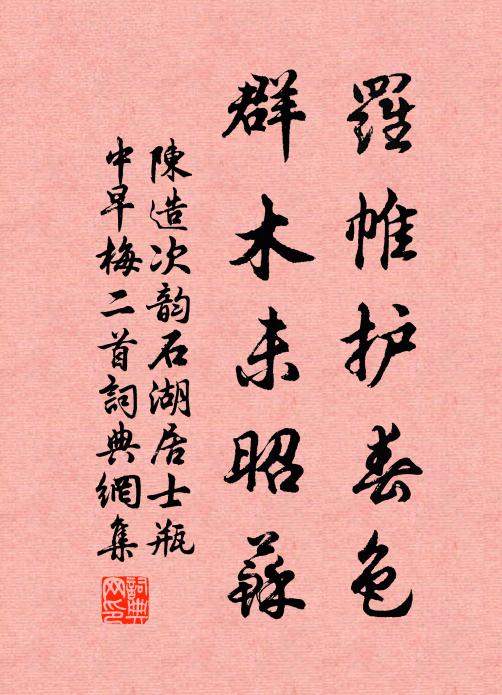 羅帷护春色
群木未昭蘇
陳造次韵石湖居士瓶
中早梅二首詞典網集
詞典網印